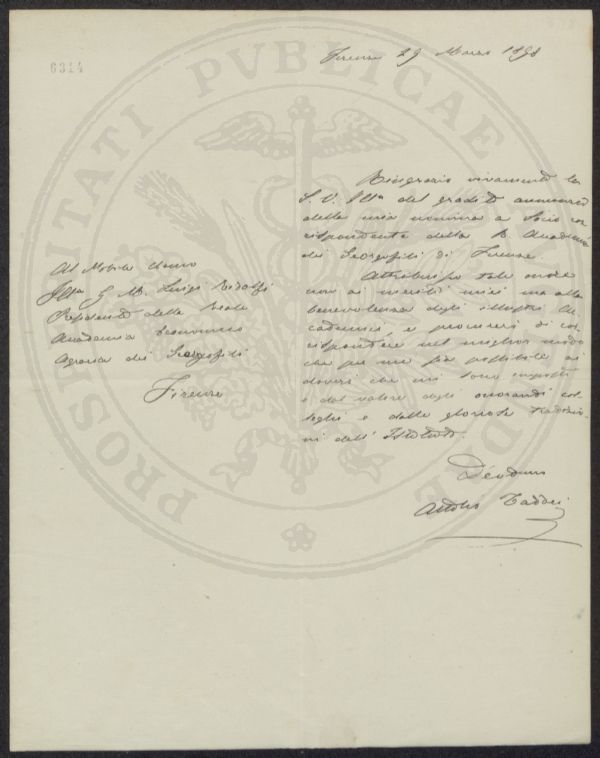 6314
Firenze 29 Marzo 1898
Ringrazio vivamente la
S. V. Illma del gradito annunzio
della mia nomina a Socio cor
rispondente della R. Accademia
dei Georgofili di Firenze.
Attribuisco tale onore
non ai meriti miei ma alla
benevolenza degli illustri Ac
cademici, e procurerò di cor
rispondere nel miglior modo
che per me sia possibile ai
doveri che mi sono imposti
e dal valore degli onorandi col
leghi e dalle gloriose tradizio
ni dell' Istituto.
Devotmo
Attilio Taddei
Al Nobile Uomo
Illmo Luigi Ridolfi
Presidente della Reale
Accademia Economico
Agraria dei Georgofili
Firenze
PROSPERITATI PVBLICAE